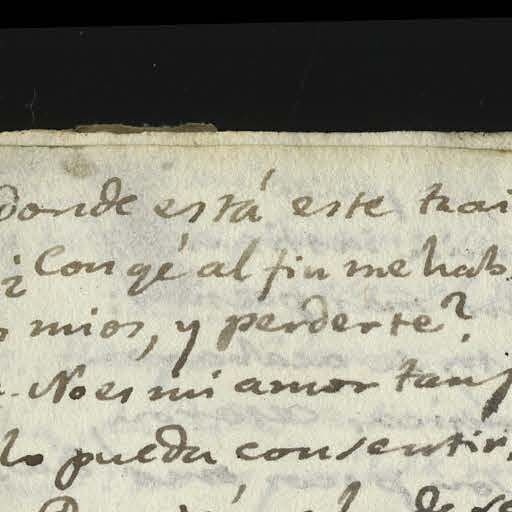 donde está este trai
¿Con qé al fin me hab
s mios, y perderte?
No es mi amor tan
lo pueda consentir.